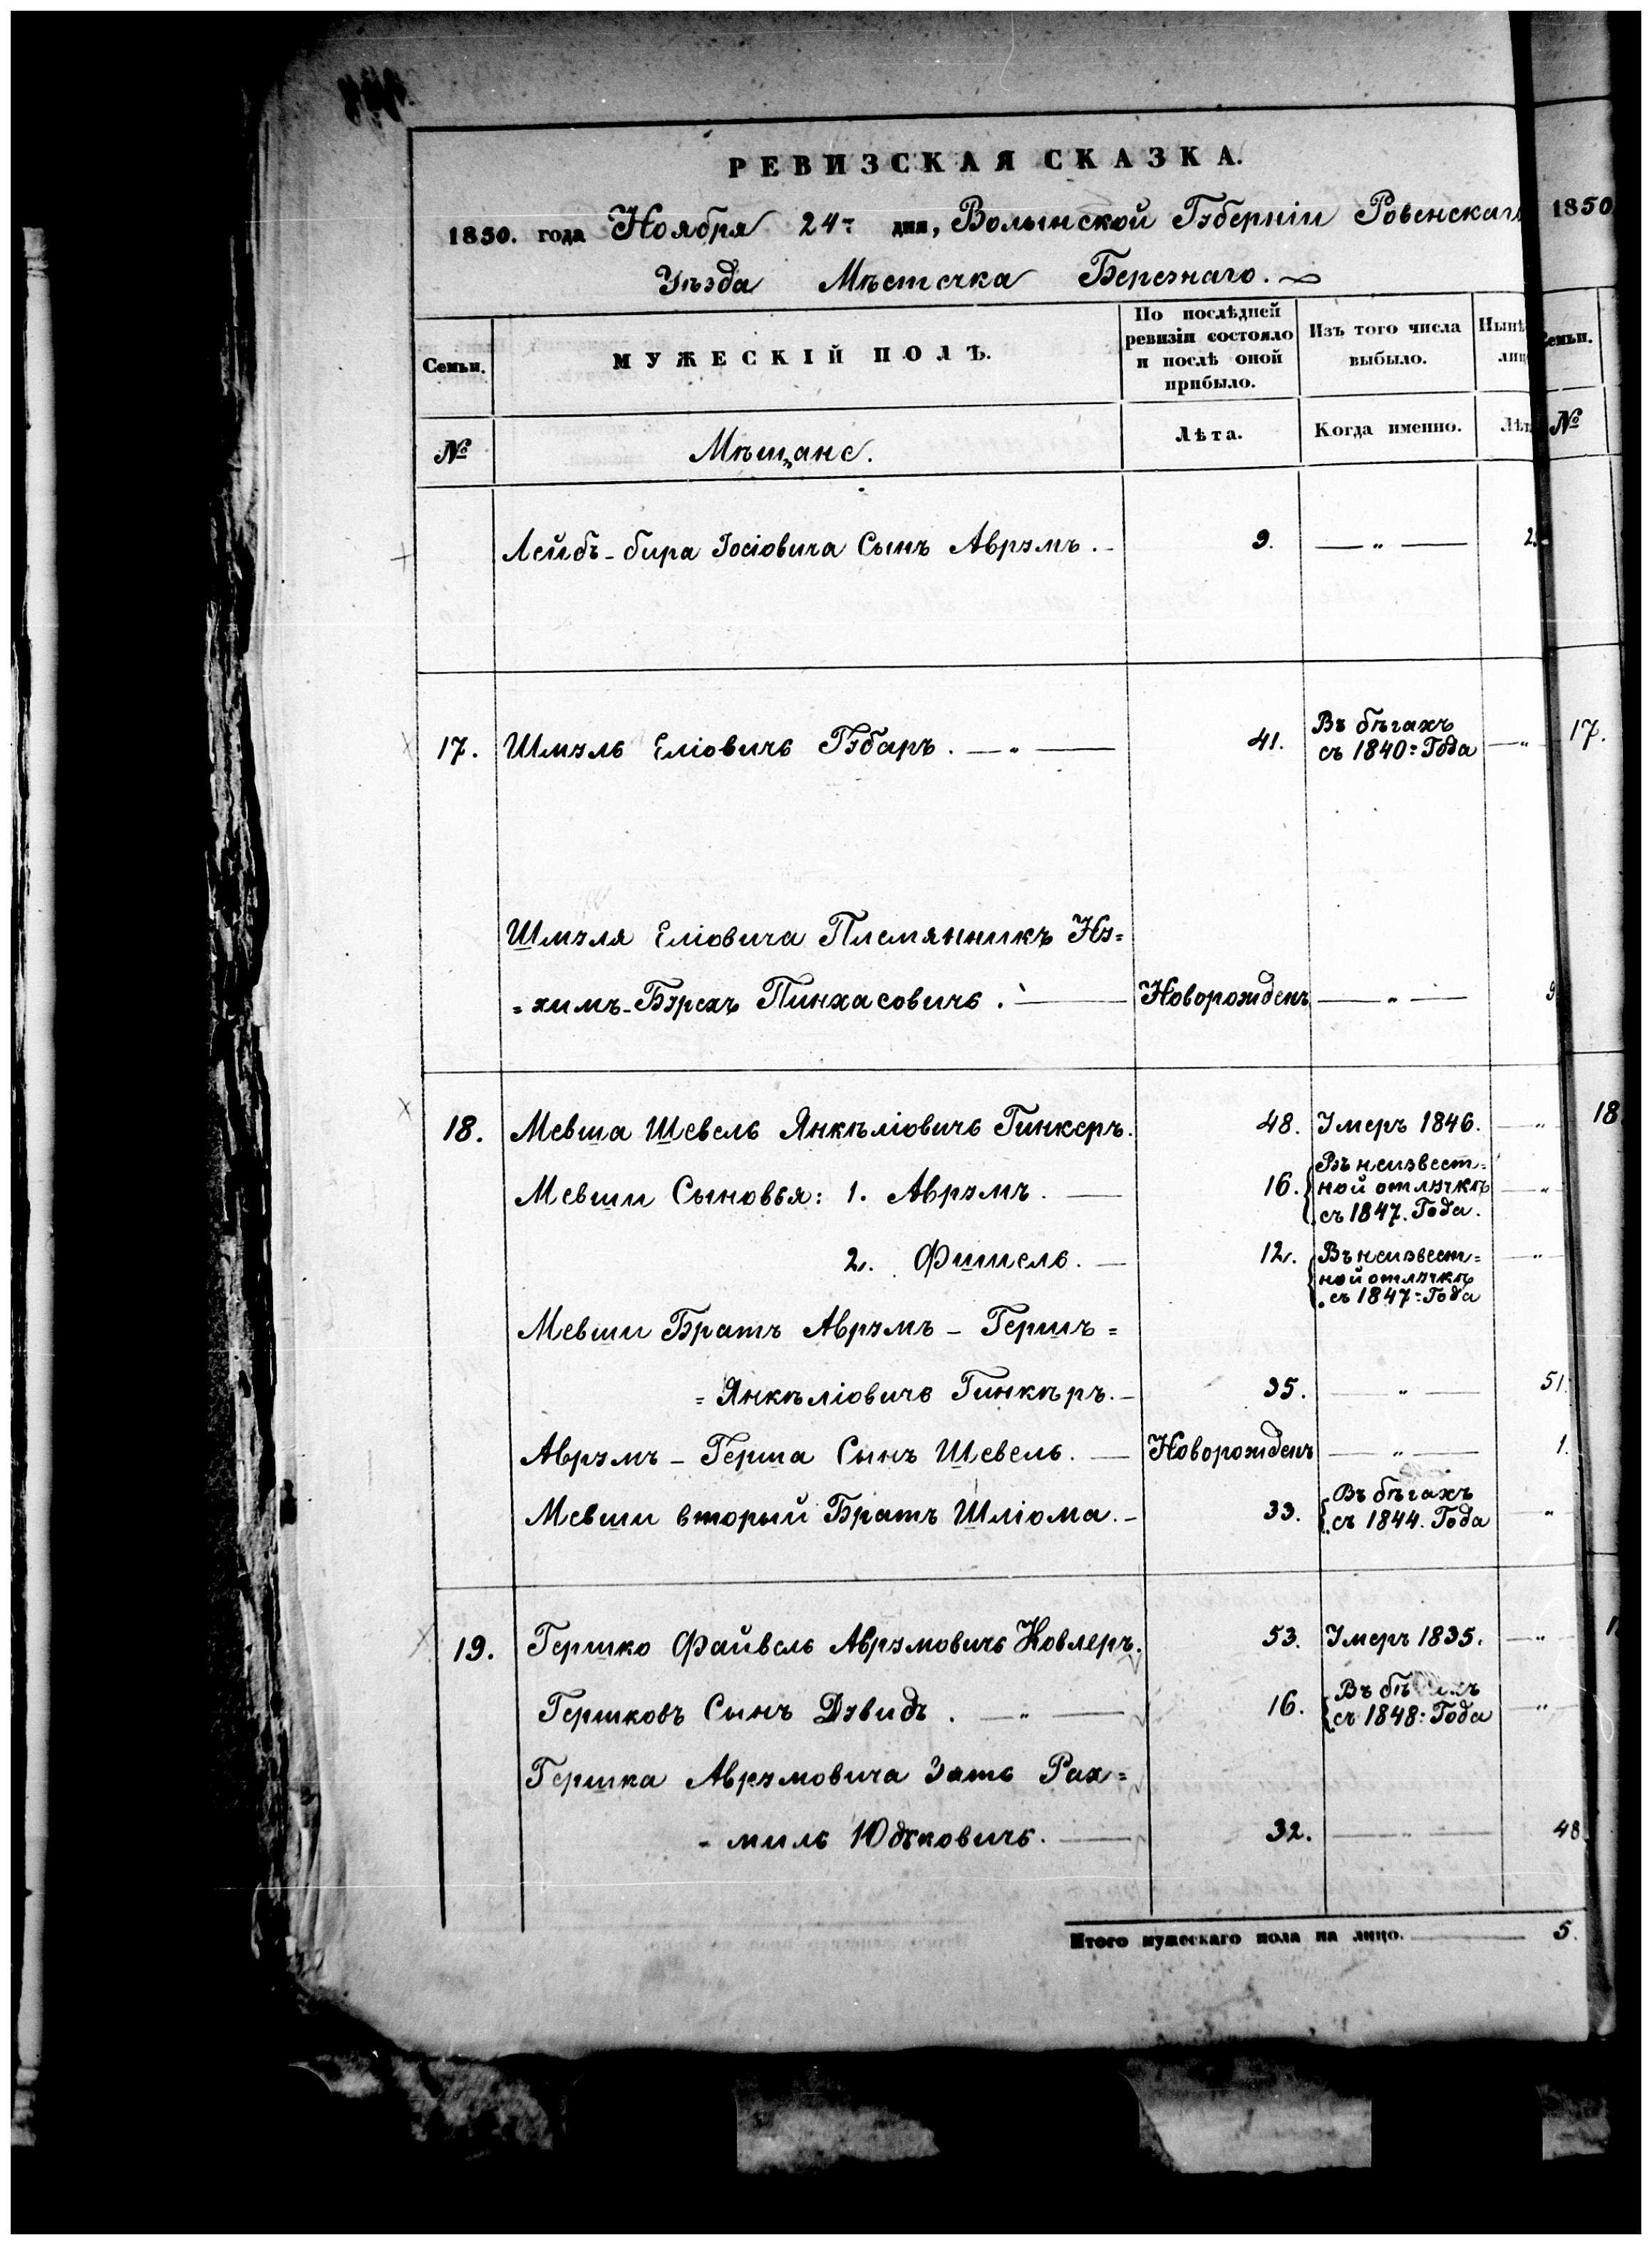 РЕВИЗСКАЯ СКАЗКА.
1850. года Ноября 24 дня, Волынской Губерніи Ровенскаго
Уѣзда Мѣстечка Березнаго.
Семьи.
МУЖЕСКІЙ ПОЛЪ.
По послѣдней ревизіи состояло и послѣ оной прибыло.
Изъ того числа выбыло.
№
Мѣщане.
Лѣта.
Когда именно.
Лейбъ-бира Іосіовича Сынъ Аврумъ. 9. — „ —
17. Шмуль Еліовичь Губаръ. — „ — 41. Въ бѣгахъ съ 1840: Года — „
Шмуля Еліовича Племянникъ Ну=
=химъ-Бурехъ Пинхасовичь. — Новорожденъ — „ — 9
18. Мевша Шевель Янкѣліовичь Гинкеръ. 48. Умеръ 1846. — „
Мевши Сыновья: 1. Аврумъ. — 16. Въ неизвест=ной отлучкѣ съ 1847. Года. — „
2. Фишель. — 12. Въ неизвест=ной отлучкѣ съ 1847: Года — „
Мевши Братъ Аврумъ-Гершъ=
=Янкѣліовичь Гинкѣръ. — 35. — „ — 51.
Аврумъ-Герша Сынъ Шевель. — Новорожденъ — „ — 1.
Мевши вторый Братъ Шліома. — 33. Въ бѣгахъ съ 1844. Года „
19. Гершко Файвель Аврумовичь Ковлеръ. 53. Умеръ 1835. — „
Гершковъ Сынъ Дувидъ. — „ — 16. Въ съ 1848: Года — „
Гершка Аврумовича Зять Рах=
=миль Юдковичь. — 32. — „ — 48
Итого мужескаго пола на лицо. — 5.
1850
Семьи.
№
17.
18